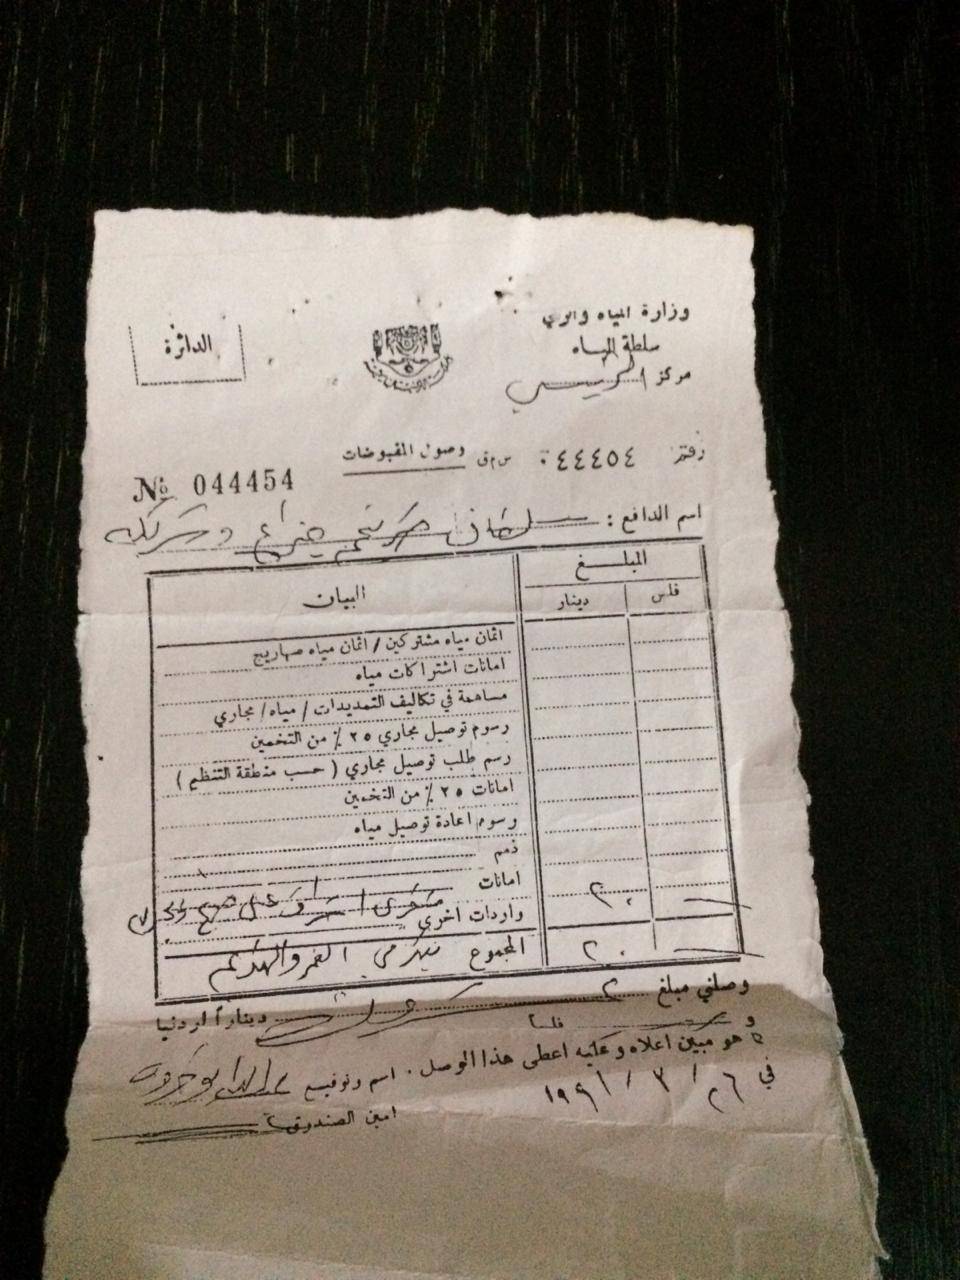 وزارة المياه والري
سلطة المياه
مركز الرئيسي
الدائرة
دفتر ٠٤٤٤٥٤ س م ق
وصول المقبوضات
№ 044454
اسم الدافع : سلطان وشركاه
المبلغ
فلس دينار البيان
اثمان مياه مشتركين / اثمان مياه صهاريج
امانات اشتراكات مياه
مساهمة في تكاليف التمديدات / مياه / مجاري
رسوم توصيل مجاري ٢٥ ٪ من التخمين
رسم طلب توصيل مجاري ( حسب منطقة التنظيم )
امانات ٢٥ ٪ من التخمين
رسوم اعادة توصيل مياه
ذمم
امانات
٢٠ واردات اخرى
٢٠ المجموع
وصلني مبلغ ٢٠ عشرون ديناراً اردنيا
و فلساً
كما هو مبين اعلاه وعليه اعطى هذا الوصل . اسم وتوقيع
في ٢٦ / ٣ / ١٩٩١
امين الصندوق